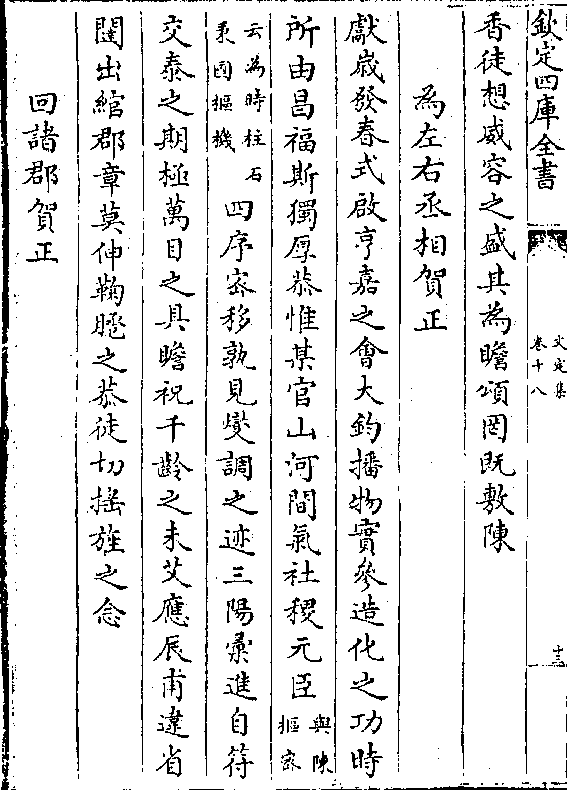 欽定四庫全書
文定集
卷十八
十三
香徒想威容之盛其為瞻頌罔既敷陳
為左右丞相賀正
獻歲發春式啟亨嘉之會大鈞播物實參造化之功時
所由昌福斯獨厚恭惟某官山河間氣社稷元臣與陳樞密
云為時柱石秉國樞機四序密移孰見燮調之迹三陽彙進自符
交泰之期極萬目之具瞻祝千齡之未艾應辰甫違省
闥出綰郡章莫伸鞠䠆之恭徒切搖旌之念
回諸郡賀正